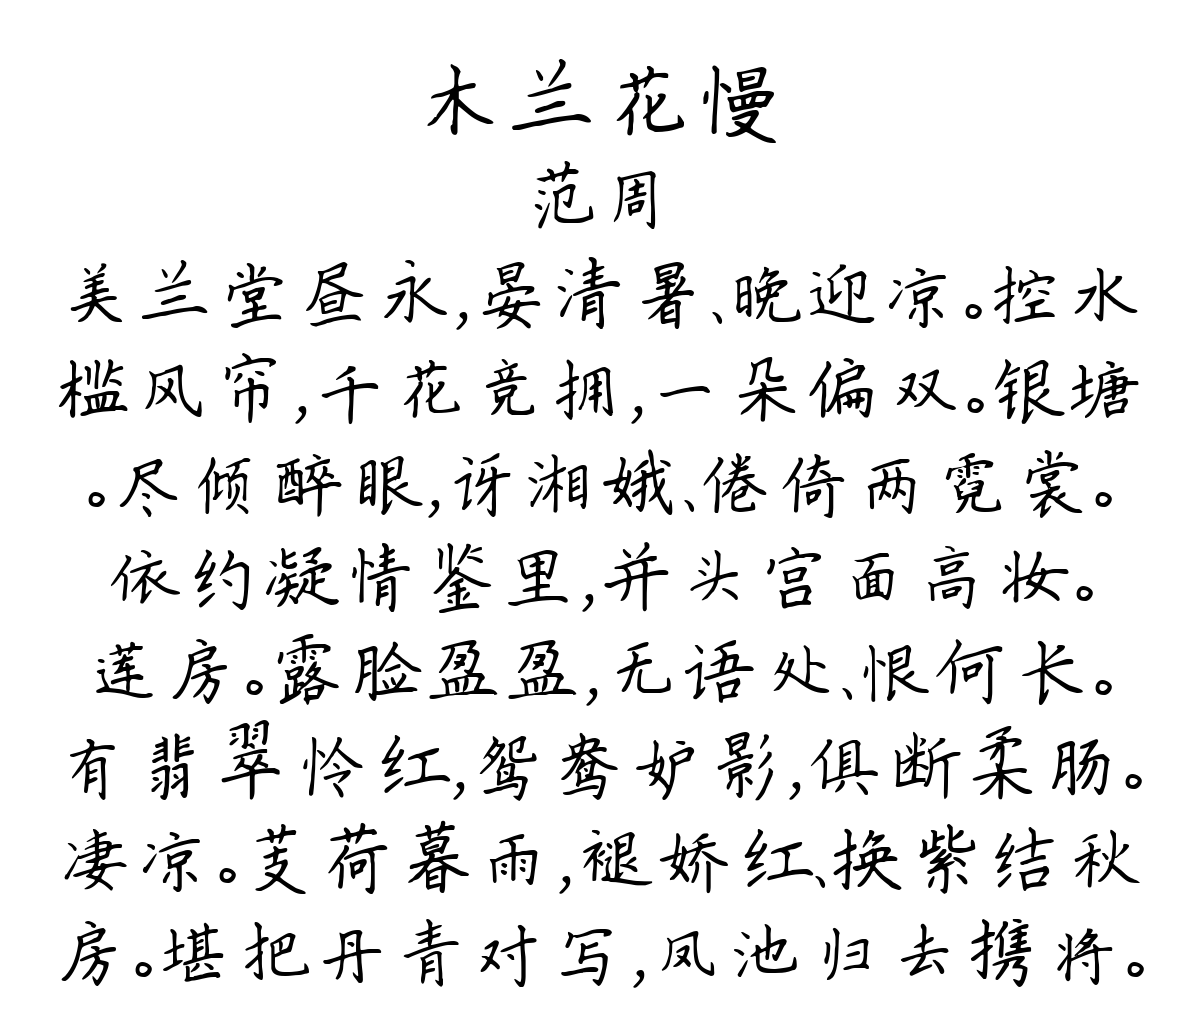 木兰花慢
范周
美兰堂昼永,晏清暑、晚迎凉。控水
槛风帘,千花竞拥,一朵偏双。银塘
。尽倾醉眼,讶湘娥、倦倚两霓裳。
依约凝情鉴里,并头宫面高妆。
莲房。露脸盈盈,无语处、恨何长。
有翡翠怜红,鸳鸯妒影,俱断柔肠。
凄凉。芰荷暮雨,褪娇红、换紫结秋
房。堪把丹青对写,凤池归去携将。